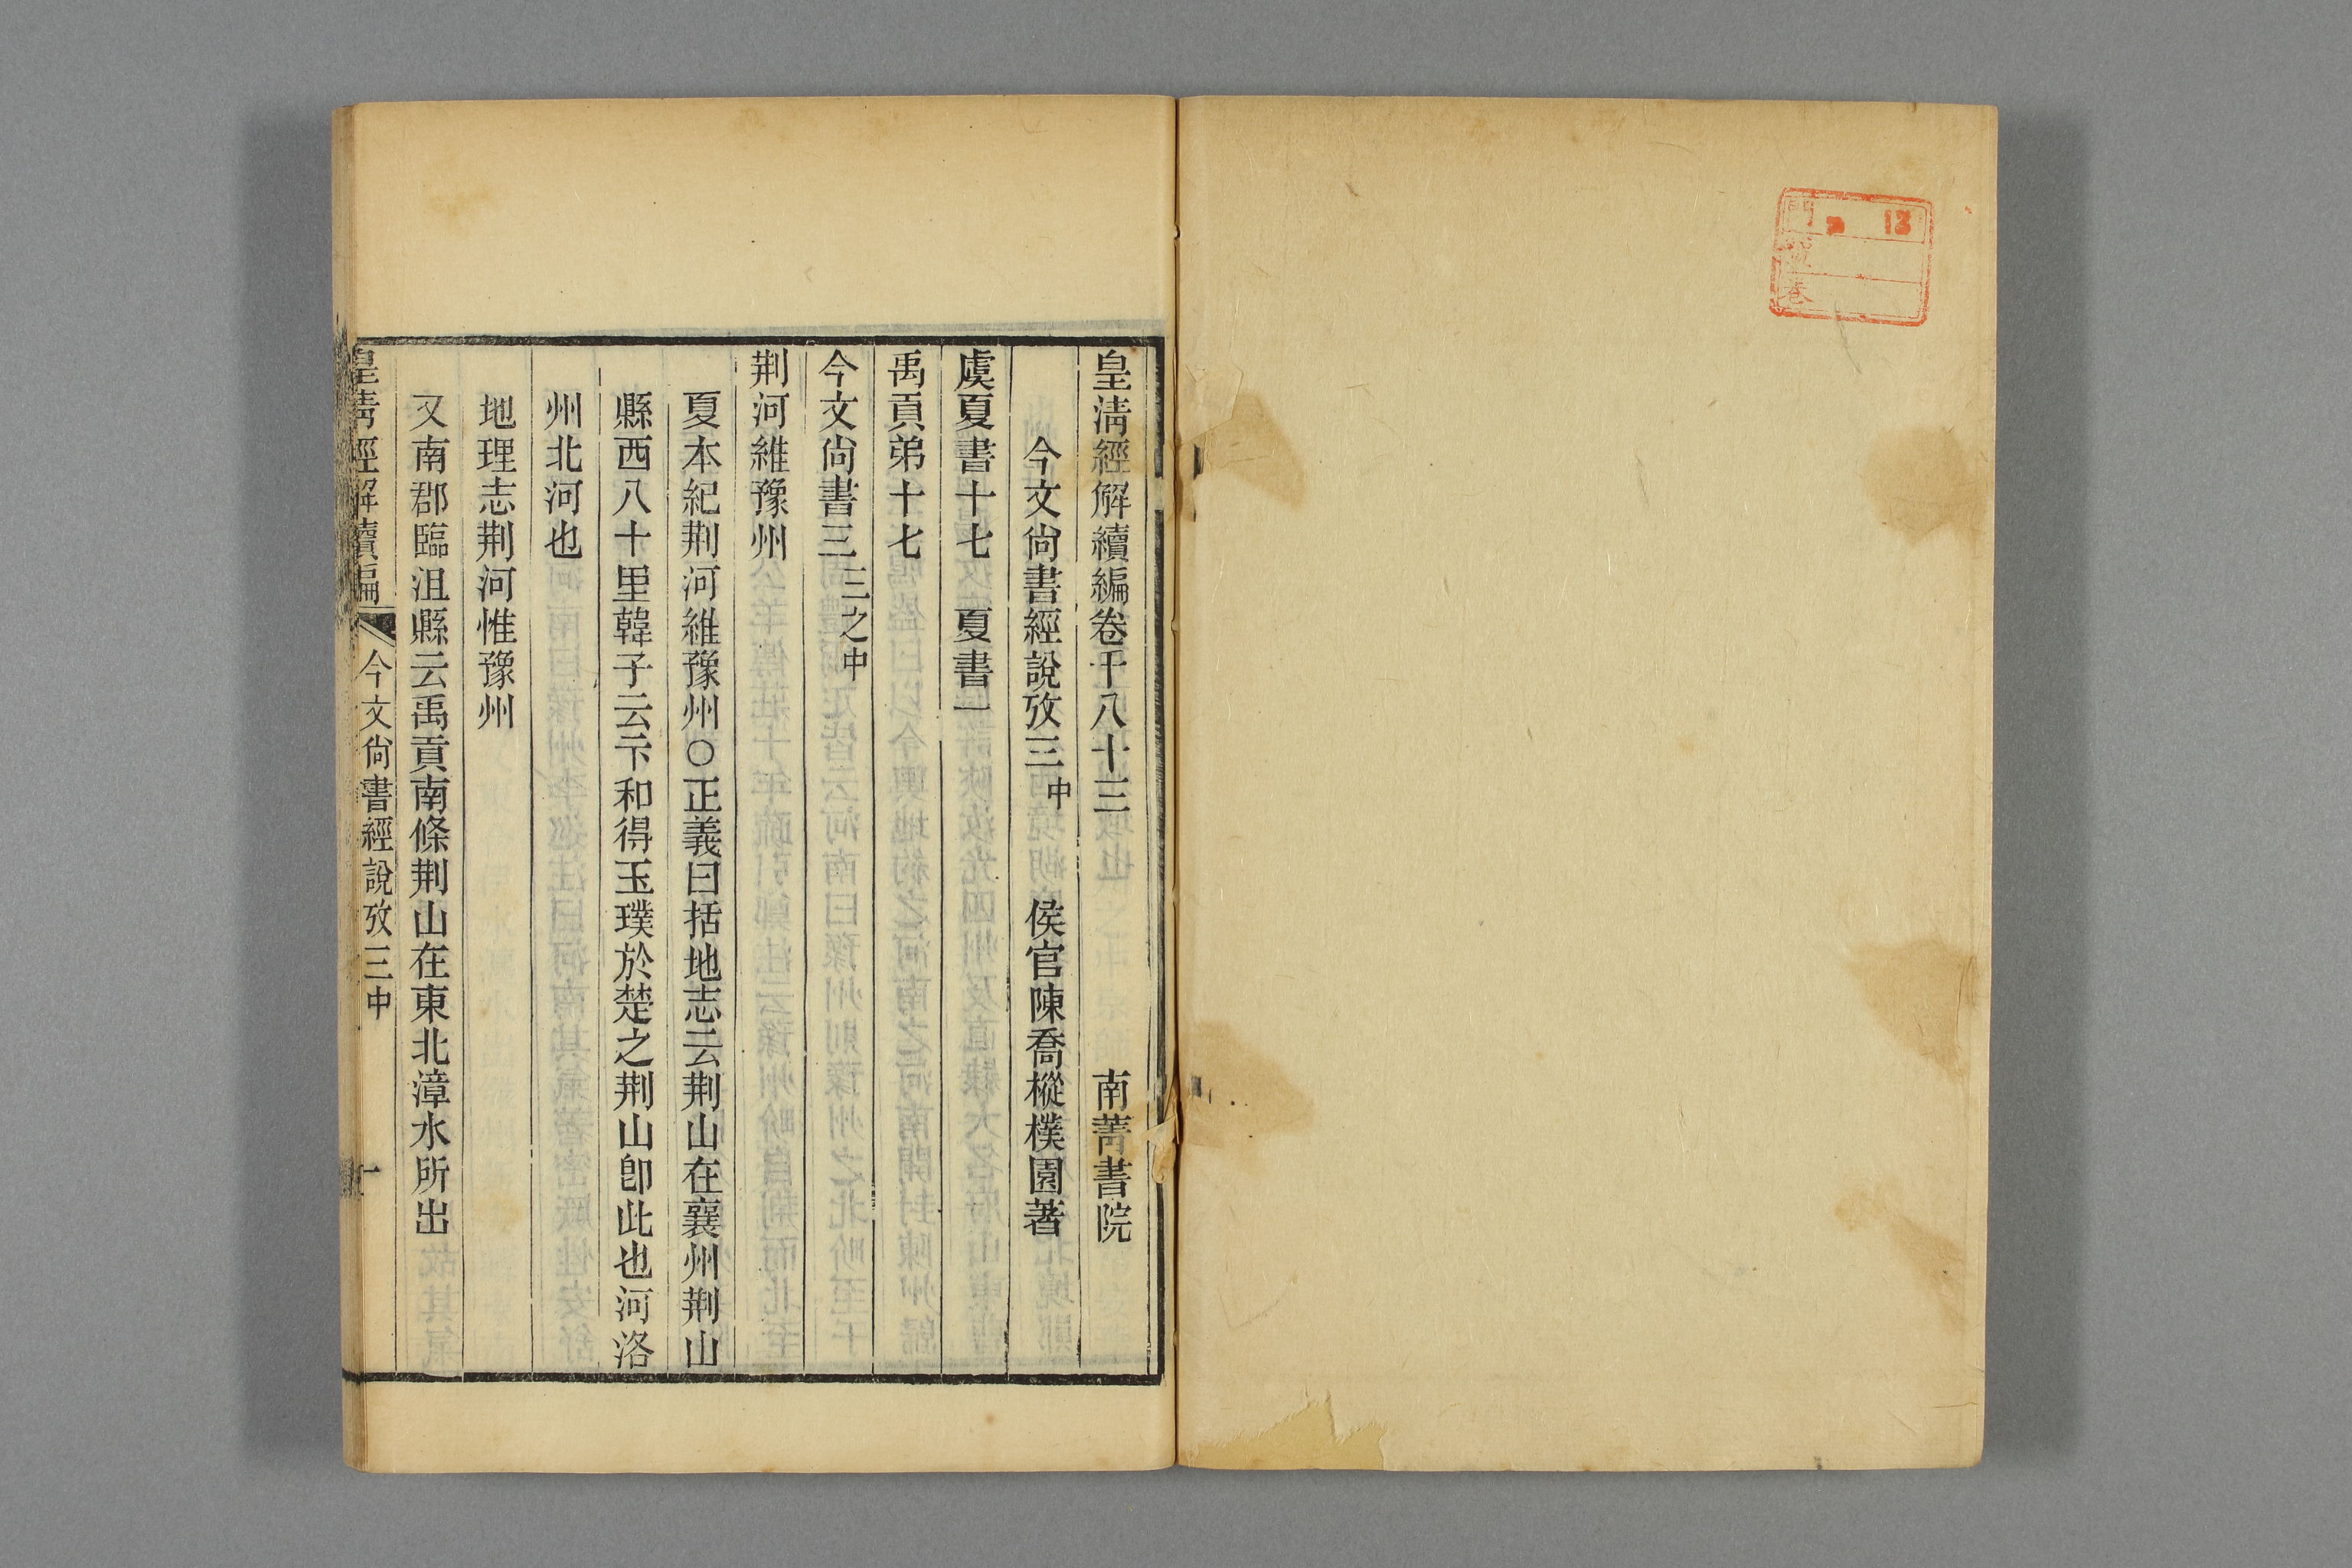 門 13
號
卷
皇淸經解續編卷千八十三 南菁書院
今文尙書經說攷三中 侯官陳喬樅樸園著
虞夏書十七 夏書一
禹貢弟十七
今文尙書三 三之中
荆河維豫州
夏本紀荆河維豫州○正義曰括地志云荆山在襄州荆山
縣西八十里韓子云卞和得玉璞於楚之荆山卽此也河洛
州北河也
地理志荆河惟豫州
又南郡臨沮縣云禹貢南條荆山在東北漳水所出
皇淸經解續編 今文尙書經說攷三中 一